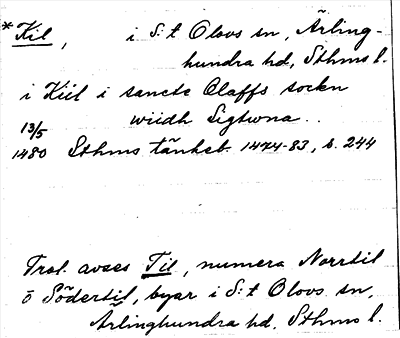 *Kil, i S:t Olovs sn, Ärling-
hundra hd, Sthms l.
i Kiil i sancte Olaffs sockn
wiidh Sigtwna..
13/5
1480 Sthms tänkeb. 1474-83, s. 244
Trol. avses Til, numera Norrtil
o Södertil, byar i S:t Olovs sn,
Ärlinghundra hd, Sthms l.